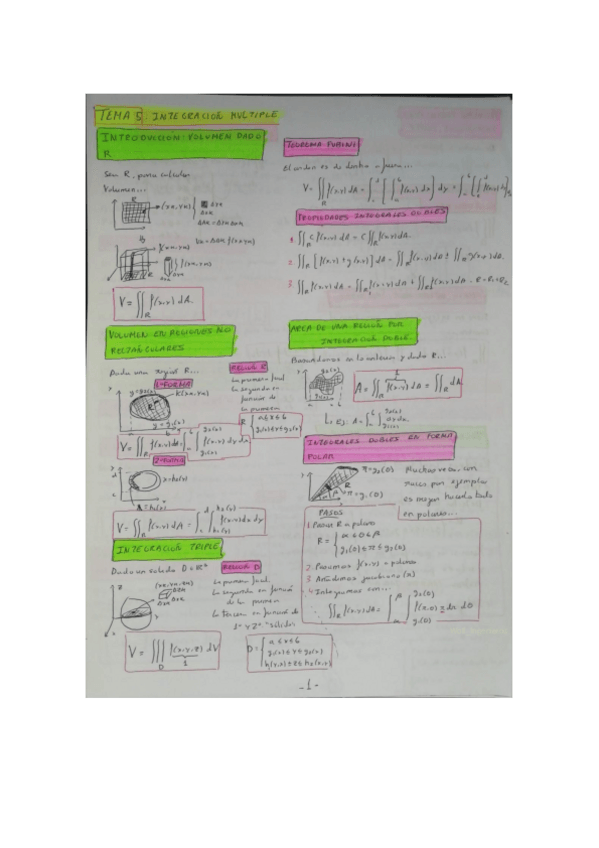 TEMA 5: INTEGRACIÓN MULTIPLE
INTRODUCCION: VOLUMEN DADO
R
Sea R, para calcular
Volumen...
R
(xk, yk)
Δyk
Δxk
f(xk, yk)
V = ∬_R f(x,y) dA
VOLUMEN EN REGIONES NO
RECTANGULARES
Dada una región R...
1-FORMA
REGIÓN R
La primera fácil
La segunda en
función de
la primera
y = g2(x)
R
(xk, yk)
y = g1(x)
R { a≤x≤b
g1(x)≤y≤g2(x)
V = ∬_R f(x,y) dA = ∫_a^b ∫_{g1(x)}^{g2(x)} f(x,y) dy dx
2-FORMA
x = h2(y)
x = h1(y)
V = ∬_R f(x,y) dA = ∫_c^d ∫_{h1(y)}^{h2(y)} f(x,y) dx dy
INTEGRACIÓN TRIPLE
REGIÓN D
La primera fácil.
La segunda en función
de la primera
La tercera en función de
V = ∭_D f(x,y,z) dV
1
D = { a≤x≤b
g1(x)≤y≤g2(x)
h1(x,y)≤z≤h2(x,y)
TEOREMA FUBINI
El orden es de dentro a fuera...
V = ∬_R f(x,y) dA = ∫_c^d [∫_a^b f(x,y) dx] dy = ∫_a^b [∫_c^d f(x,y) dy]
PROPIEDADES INTEGRALES DOBLES
1 ∬_R c f(x,y) dA = c ∬_R f(x,y) dA.
2 ∬_R [f(x,y) ± g(x,y)] dA = ∬_R f(x,y) dA ± ∬_R g(x,y) dA.
3 ∬_R f(x,y) dA = ∬ f(x,y) dA + ∬ f(x,y) dA
AREA DE UNA REGIÓN POR
INTEGRACIÓN DOBLE.
g2(x)
g1(x)
1
A = ∬_R f(x,y) dA = ∬_R dA
Ej: A = ∫_a^b ∫_{g1(x)}^{g2(x)} dy dx
INTEGRALES DOBLES EN FORMA
POLAR
R
Muchas veces, con
por ejemplo
es mejor hacerlo todo
en polares...
PASOS
1. Pasar R a polares
R = { α≤θ≤β
g1(θ)≤r≤g2(θ)
2. Pasamos f(x,y) a polares
3 Añadimos jacobiano (r)
4 Integramos con...
∬_R f(x,y) dA = ∫_α^β ∫_{g1(θ)}^{g2(θ)} f(r,θ) r dr dθ
-1-